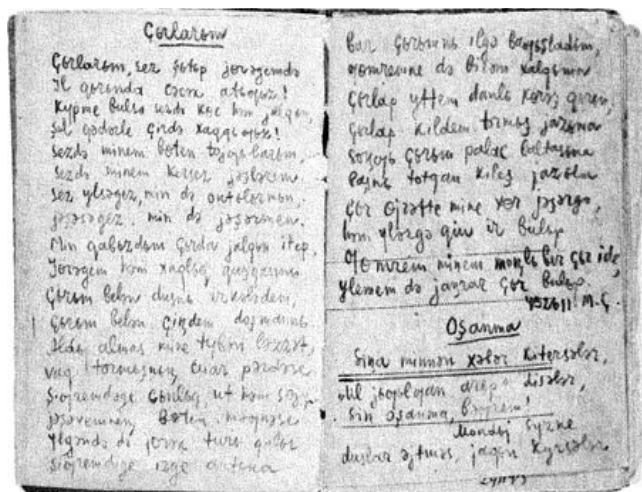 Çьrlarьm
Çьrlarьm, sez şьtьp jɵrəgemdə
Il qьrьnda cəcək atьgьz!
Kypme bulsa sezdə kɵc həm jalqьn,
Şul qədərle çirdə xaqqьgьz!
Sezdə minem bɵten tojgьlarьm,
Sezdə minem kersez jəşlərem.
Sez ylsəgez, min də onьtьlьrmьn,
Jəşəsəgez, min də jəşərmen.
Min qabьzdьm çьrda jalqьn itep,
Jɵrəgem həm xaqlьq quşqanьn.
Çьrьm belən dusnь irkələdem,
Çьrьm belən çiŋdem doşmannь.
Aldьj almas mine tybən ləzzət,
vaq tormьşnьŋ cuar pərdəse
Şigьremdəge çьnlьq, ut həm sɵjy
jəşəvemneŋ bɵten məgnəse
Ylgəndə də jɵrək turь qalьr
Şigьremdəge izge antьna
Bar çьrьmnь ilgə bagьşladьm,
Gomremne də birəm xalqьma
Çьrlap yttem danlь kɵrəş qьrьn,
Çьrlap kildem tormьş jazьna
Soŋgь çьrьm palac baltasьna
Başnь totqan kileş jazьla
Çьr ɵjrətte mine xɵr jəşərgə,
həm ylərgə qьju ir bulьp
Gomrem minem moŋlь ber çьr ide,
Ylemem də jaŋrar çьr bulьp.
M.Ç.
Oşanma
Siŋa minnən xəbər kitersələr,
ul jɵdəp disələr,
Sin oşanma, bəgrem!
Mondьj syzne
duslar əjtməs, jaqьn kyrsələr